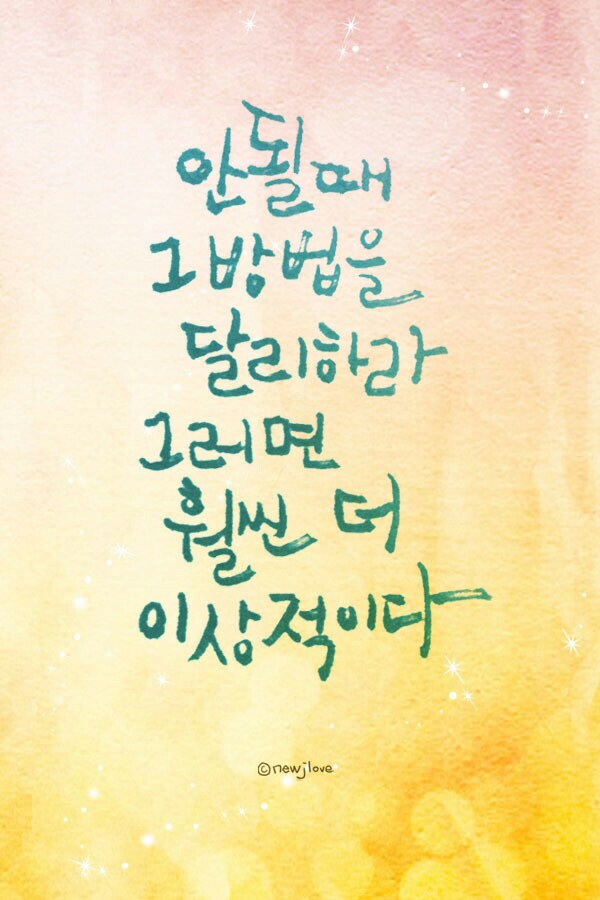 안될때
그방법을
달리하라
그러면
훨씬 더
이상적이다
©newjlove